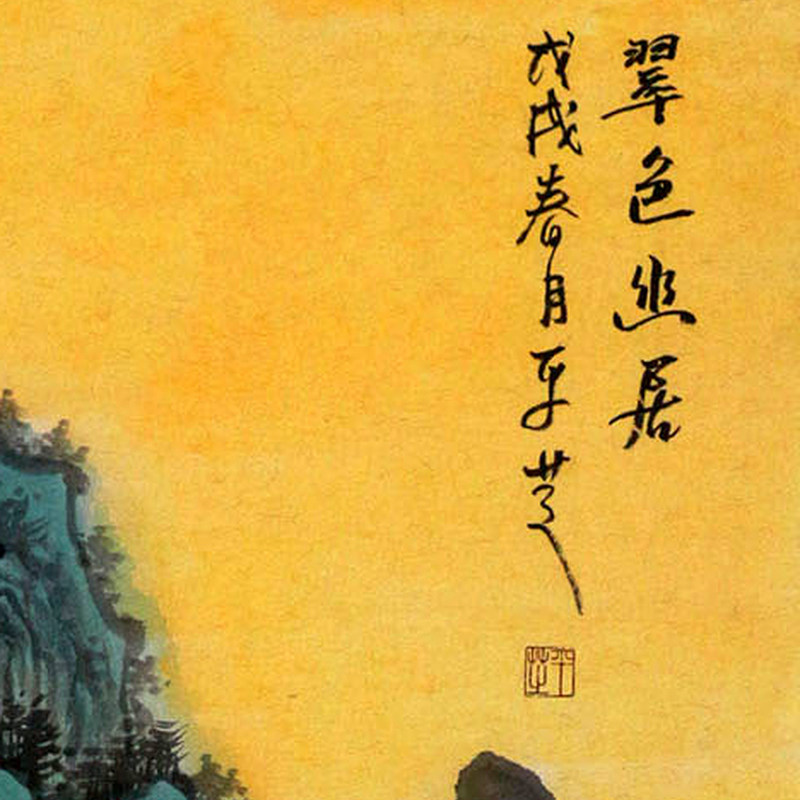 翠色幽居
戊戌春月平芝
平芝